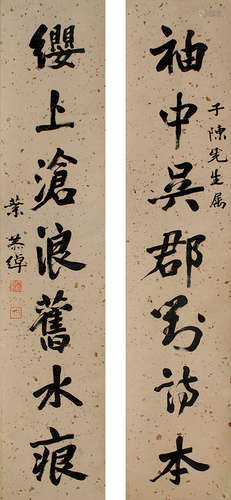 袖中吳郡新詩本
子陳先生属
纓上滄浪舊水痕
葉恭綽